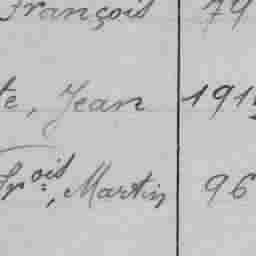 François 79
te, Jean 191
Fr.ois, Martin 96